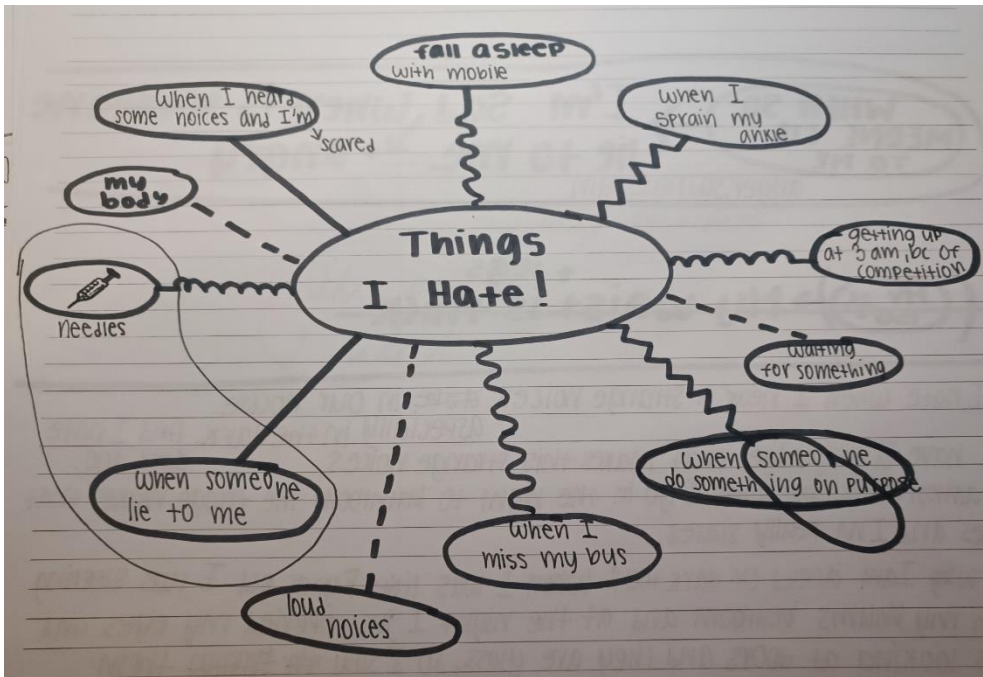 Things
I Hate!
fall asleep
with mobile
when I
sprain my
ankle
getting up
at 3 am, bc of
competition
waiting
for something
when someone
do something on purpose
when I
miss my bus
loud
noices
when someone
lie to me
needles
my
body
when I heard
some noices and I'm
scared